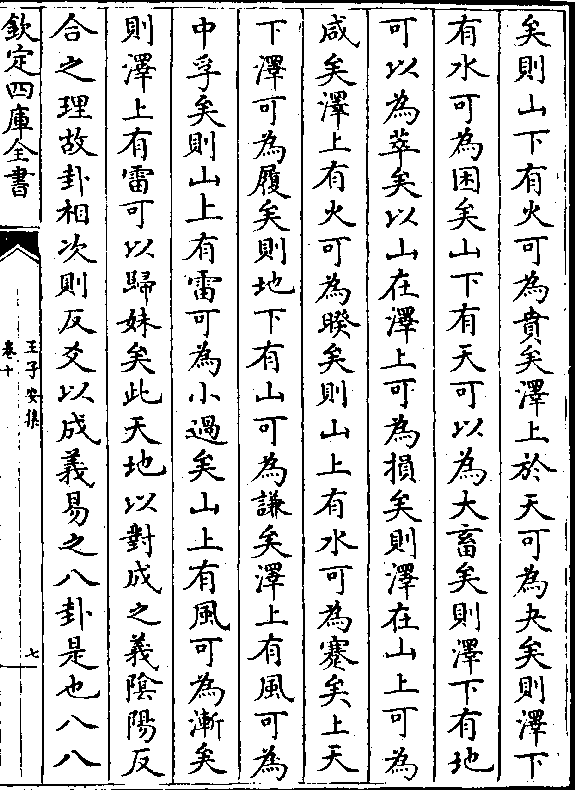 矣則山下有火可為賁矣澤上於天可為夬矣則澤下
有水可為困矣山下有天可以為大畜矣則澤下有地
可以為萃矣以山在澤上可為損矣則澤在山上可為
咸矣澤上有火可為睽矣則山上有水可為蹇矣上天
下澤可為履矣則地下有山可為謙矣澤上有風可為
中孚矣則山上有雷可為小過矣山上有風可為漸矣
則澤上有雷可以歸妹矣此天地以對成之義陰陽反
合之理故卦相次則反爻以成義易之八卦是也八八
欽定四庫全書
王子安集
卷十
七